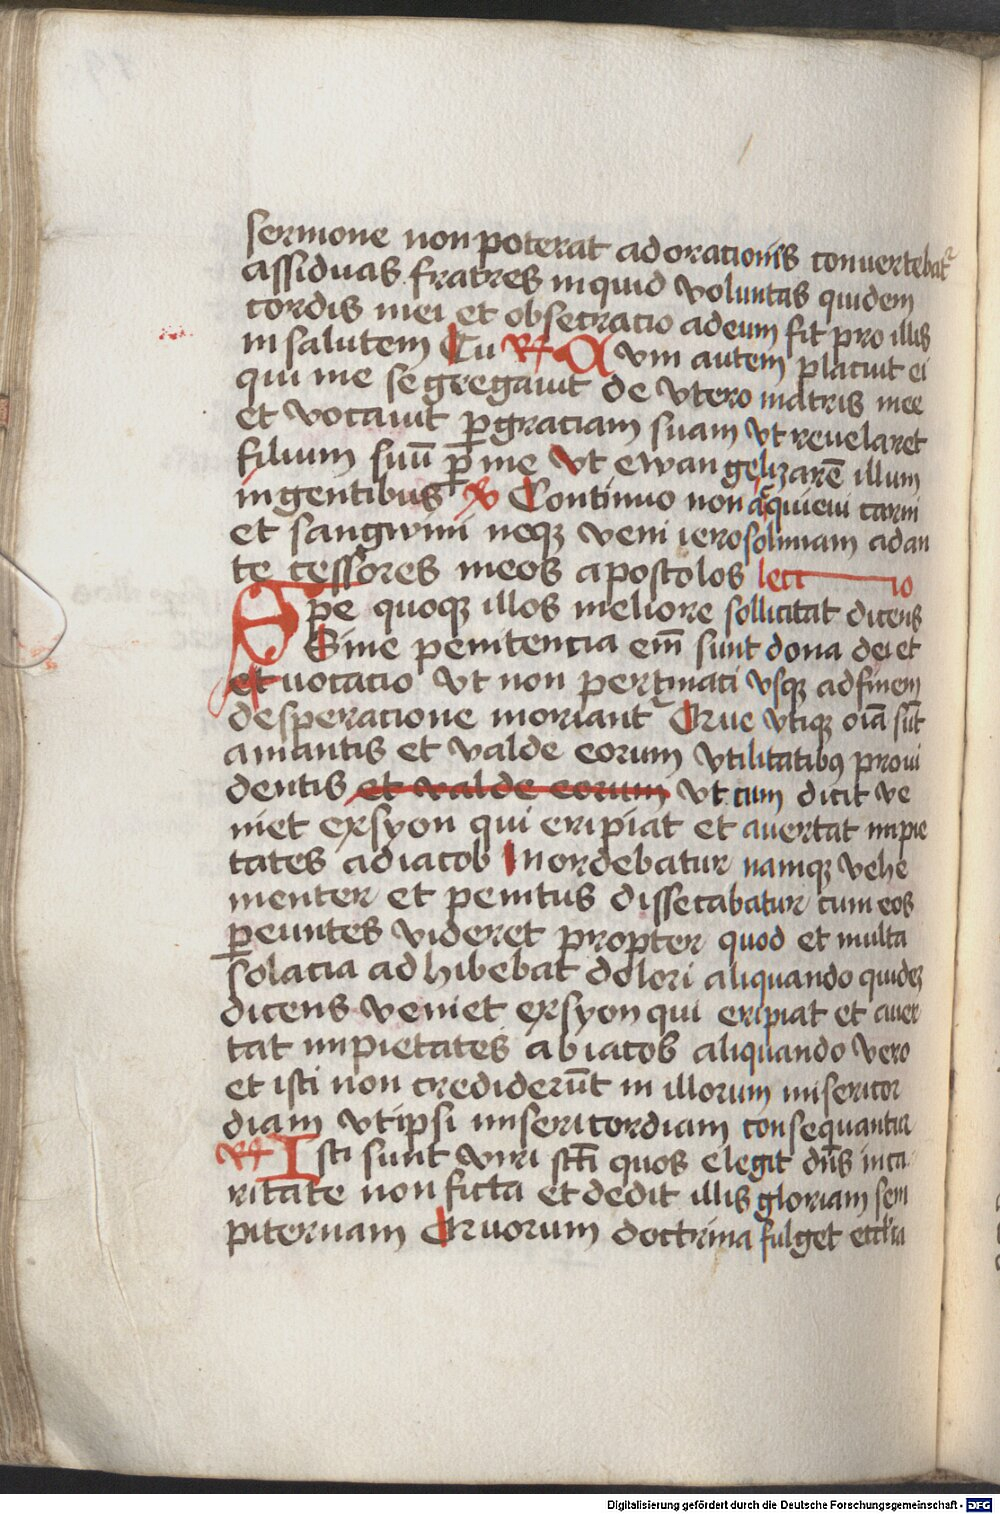 sermone non poterat ad oracionis conuertebat᷑
assiduas fratres inquid voluntas quidem
cordis mei et obsecracio ad eum fit pro illis
in salutem Tu R̸ Cum autem placuit ei
qui me segregauit de vtero matris mee
et vocauit ꝑ graciam suam vt reuelaret
filium suū ꝑ me vt ewangelizarē illum
in gentibus V̸ Continuo non aquieui carni
et sangwini neqꝫ veni ierosolimam ad an
te cessores meos apostolos lectio
Spe quoqꝫ illos meliore sollicitat dicens
Sine penitencia em̄ sunt dona dei et
et uocacio vt non pertinaci vsqꝫ ad finem
desperacione moriant᷑ Que vtiqꝫ oīa sūt
amantis et valde eorum vtilitatibꝰ proui
dentis et valde eorum vt cum dicit ve
niet ex syon qui eripiat et auertat impie
tates ad iacob Inordebatur namqꝫ vehe
menter et penitus dissecabatur cum eos
ꝑeuntes videret propter quod et multa
solacia adhibebat dolori aliquando quideꝫ
dicens veniet ex syon qui eripiat et auer
tat impietates ab iacob aliquando vero
et isti non crediderūt in illorum misericor
diam vt ipsi misericordiam consequantur
R̸ Isti sunt viri sc̄ti quos elegit dn̄s in ca
ritate non ficta et dedit illis gloriam sem
piternam Quorum doctrina fulget eccl̄ia
Digitalisierung gefördert durch die Deutsche Forschungsgemeinschaft - DFG